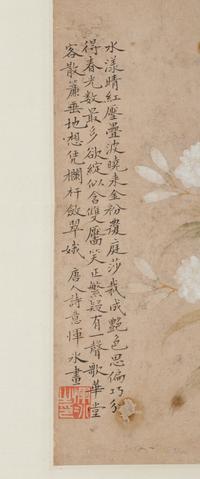 水漾晴紅壓疊波曉來金粉覆庭莎裁成艷色思偏巧分
得春光數最多欲綻似含雙靨笑正繁疑有一聲歌華堂
客散簾垂地想凭欄杆斂翠娥 唐人詩意惲氷畫